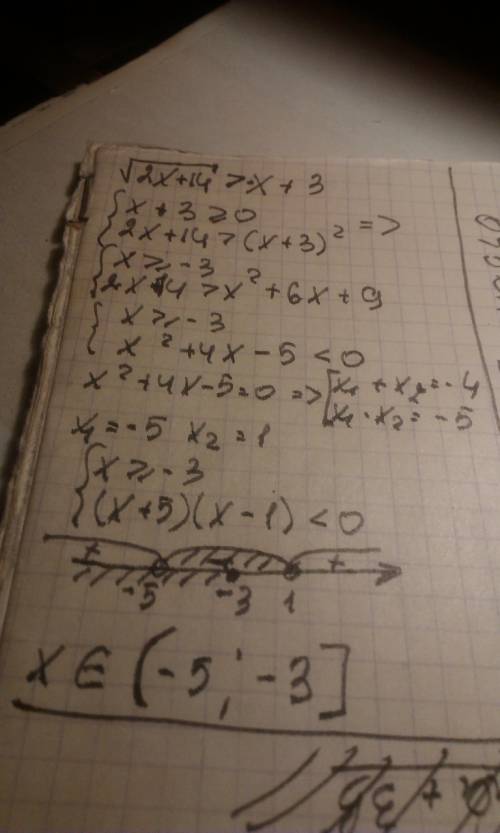 √2x+14 > x + 3
{ x + 3 ⩾ 0
2x+14 > (x+3)² =>
{ x ⩾ -3
2x+14 > x² + 6x + 9
{ x ⩾ -3
x² + 4x - 5 < 0
x² + 4x - 5 = 0 => [ x₁ + x₂ = -4
x₁ · x₂ = -5
x₁ = -5 x₂ = 1
{ x ⩾ -3
(x+5)(x-1) < 0
+ - +
-5 -3 1
x ∈ (-5; -3]